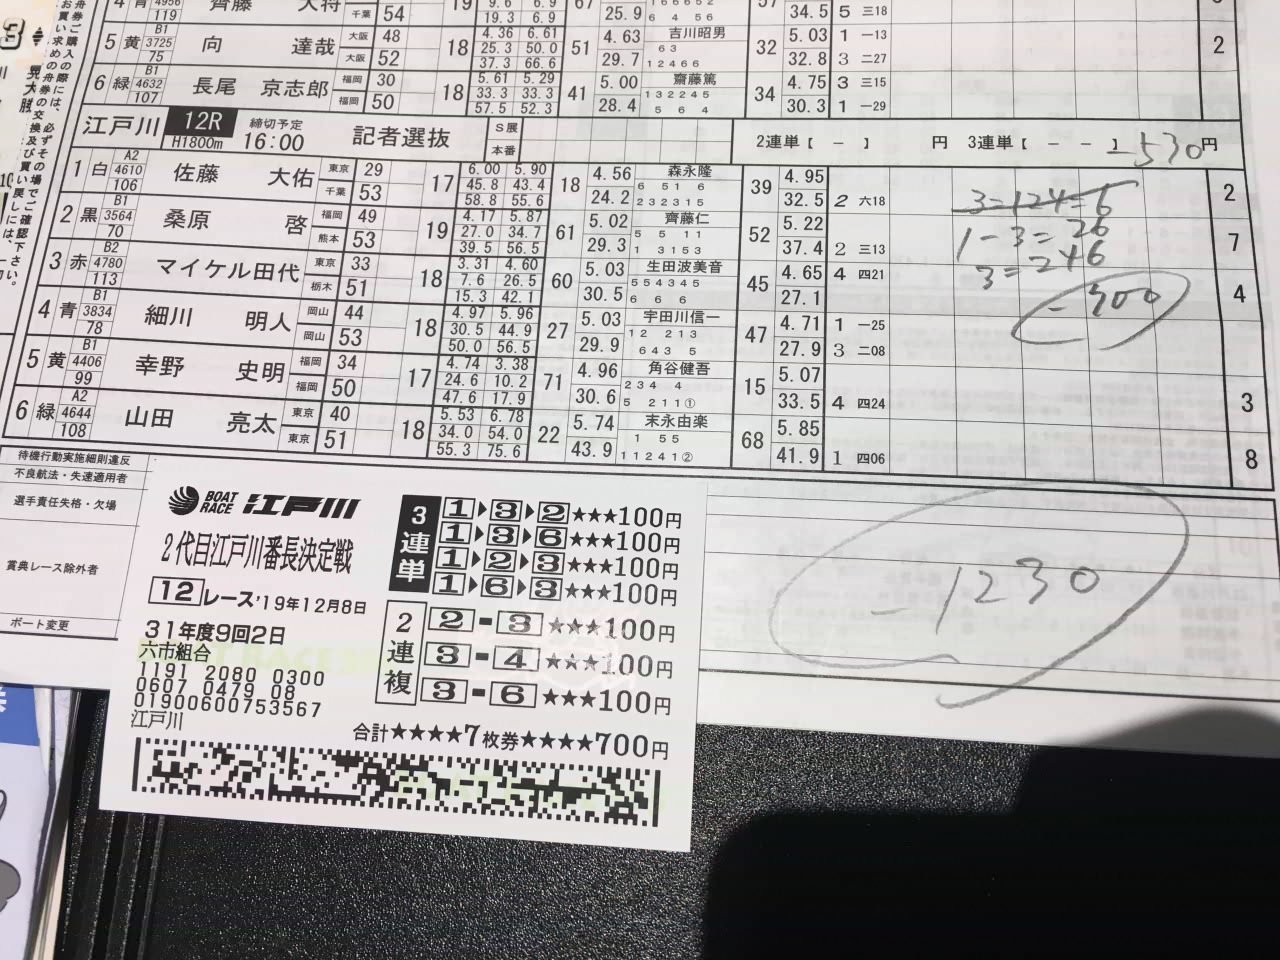 5 黄 B1 3725 75 向 達哉 大阪 48 大阪 52 18 4.36 6.61 25.3 50.0 37.3 66.6 51 4.63 29.7 吉川昭男 63 12466 32 5.03 32.8 1 一13 3 二27 2
6 緑 B1 4632 107 長尾 京志郎 福岡 30 福岡 50 18 5.61 5.29 33.3 33.3 57.5 52.3 41 5.00 28.4 齋藤篤 132245 5 6 4 34 4.75 30.3 3 三15 1 一29
江戸川 12R H1800m 締切予定 16:00 記者選抜 S展 本番 2連単【 - 】 円 3連単【 - - 】 -530円
1 白 A2 4610 106 佐藤 大佑 東京 29 千葉 53 17 6.00 5.90 45.8 43.4 58.8 55.6 18 4.56 24.2 森永隆 6 51 6 232315 39 4.95 32.5 2 六18 2
2 黒 B1 3564 70 桑原 啓 福岡 49 熊本 53 19 4.17 5.87 27.0 34.7 39.5 56.5 61 5.02 29.3 齊藤仁 5 5 11 1 3153 52 5.22 37.4 2 三13 7
3 赤 B2 4780 113 マイケル田代 東京 33 栃木 51 18 3.31 4.60 7.6 26.5 15.3 42.1 60 5.03 30.5 生田波美音 554345 6 6 6 45 4.65 27.1 4 四21 4
4 青 B1 3834 78 細川 明人 岡山 44 岡山 53 18 4.97 5.96 30.5 44.9 50.0 56.5 27 5.03 29.9 宇田川信一 12 213 643 5 47 4.71 27.9 1 一25 3 二08
5 黄 B1 4406 99 幸野 史明 福岡 34 福岡 50 17 4.74 3.38 24.6 10.2 47.6 17.9 71 4.96 30.6 角谷健吾 234 4 5 211① 15 5.07 33.5 4 四24 3
6 緑 A2 4644 108 山田 亮太 東京 40 東京 51 18 5.53 6.78 34.0 54.0 55.3 75.6 22 5.74 43.9 末永由楽 1 55 11241② 68 5.85 41.9 1 四06 8
3=124=6
1-3=26
3=246
-700
待機行動実施細則違反
不良航法・失速適用者
選手責任失格・欠場
賞典レース除外者
ボート変更
-1230
BOAT RACE 江戸川
2代目江戸川番長決定戦
12レース'19年12月8日
31年度9回2日
六市組合
1191 2080 0300
0607 0479 08
01900600753567
江戸川
3連単
1▶3▶2★★★100円
1▶3▶6★★★100円
1▶2▶3★★★100円
1▶6▶3★★★100円
2連複
2-3★★★100円
3-4★★★100円
3-6★★★100円
合計★★★★7枚券★★★★700円